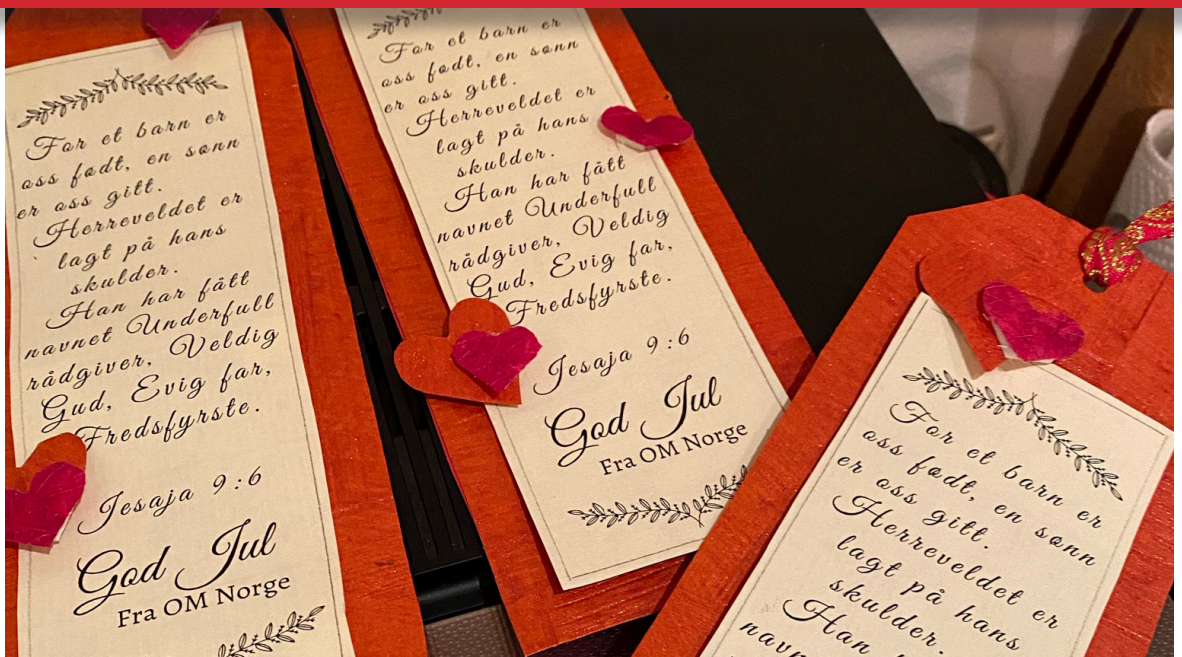 For et barn er
oss født, en sønn
er oss gitt.
Herreveldet er
lagt på hans
skulder.
Han har fått
navnet Underfull
rådgiver, Veldig
Gud, Evig far,
Fredsfyrste.
Jesaja 9:6
God Jul
Fra OM Norge
For et barn er
oss født, en sønn
er oss gitt.
Herreveldet er
lagt på hans
skulder.
Han har fått
navnet Underfull
rådgiver, Veldig
Gud, Evig far,
Fredsfyrste.
Jesaja 9:6
God Jul
Fra OM Norge
For et barn er
oss født, en sønn
er oss gitt.
Herreveldet er
lagt på hans
skulder.
Han har